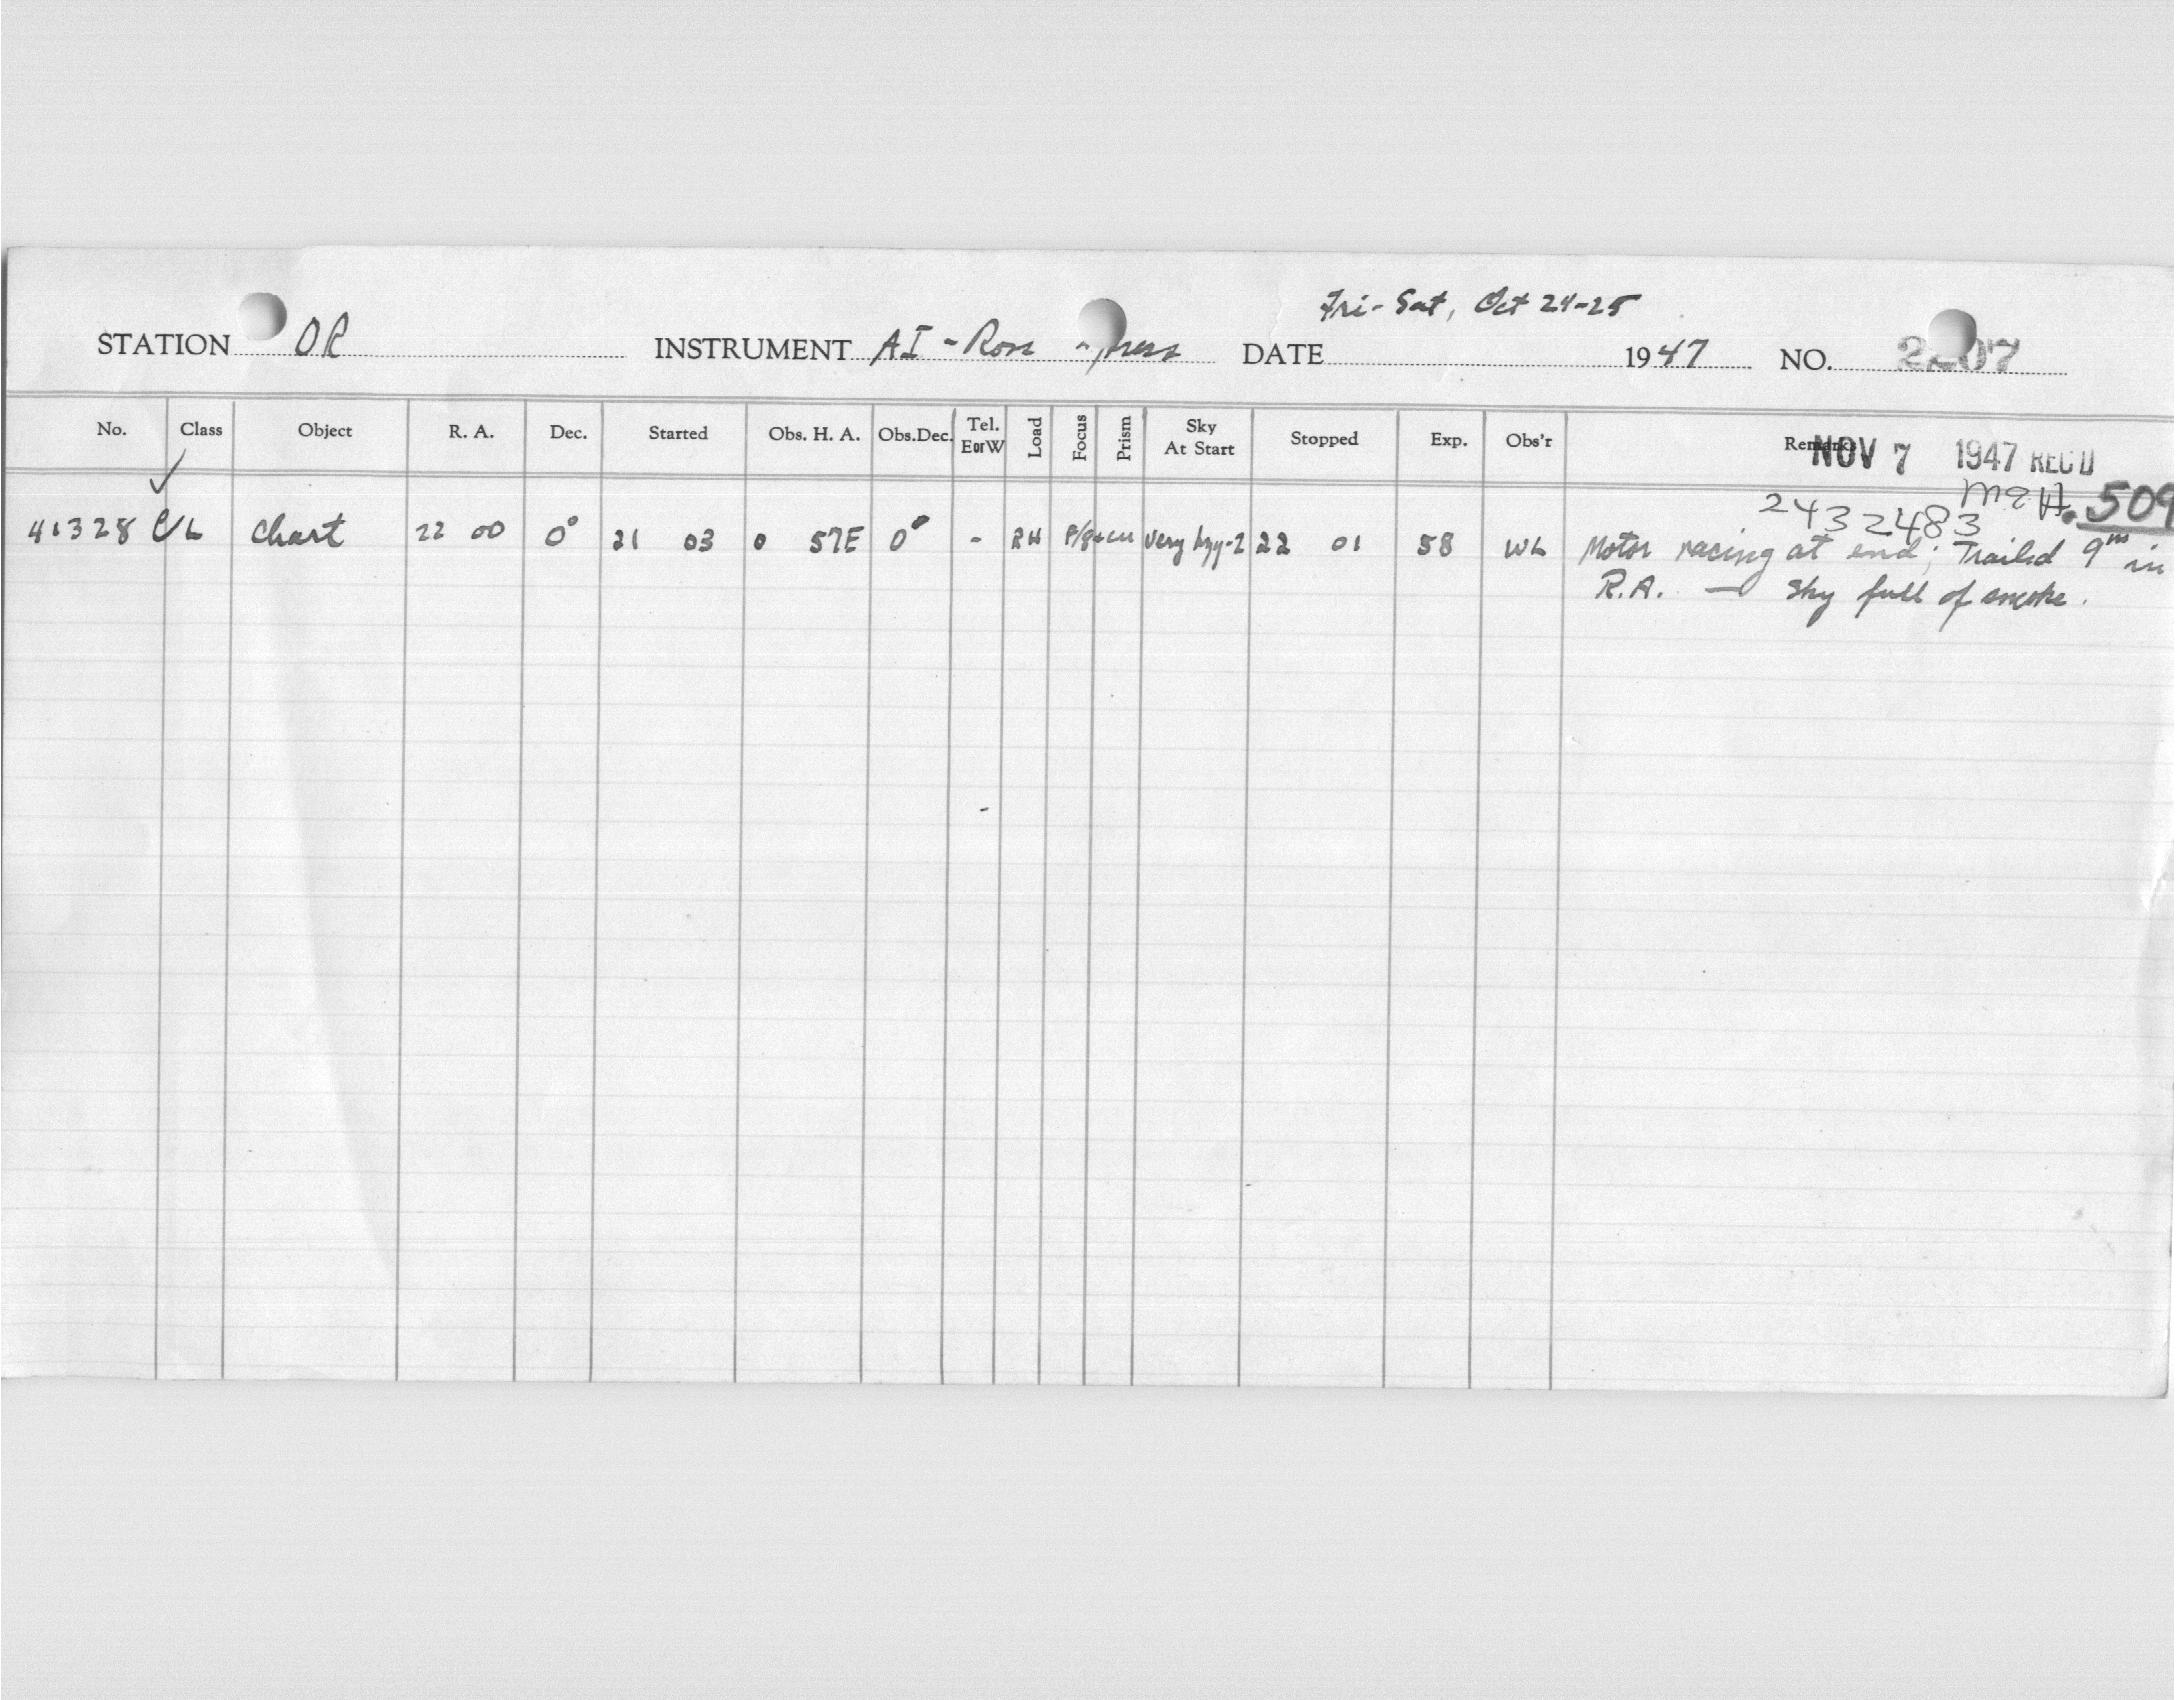 Fri - Sat, Oct 24-25
STATION OR INSTRUMENT AI - Ross DATE 1947 NO.
No. Class Object R. A. Dec. Started Obs. H. A. Obs.Dec. Tel. E or W Load Focus Prism Sky At Start Stopped Exp. Obs'r Remarks
NOV 7 1947 REC'D
2432483 .509
41328 C/L Chart 22 00 0° 21 03 0 57E 0° - RH very hzy-2 22 01 58 WL Motor racing at end; Trailed 9m in
R.A. — Sky full of smoke.